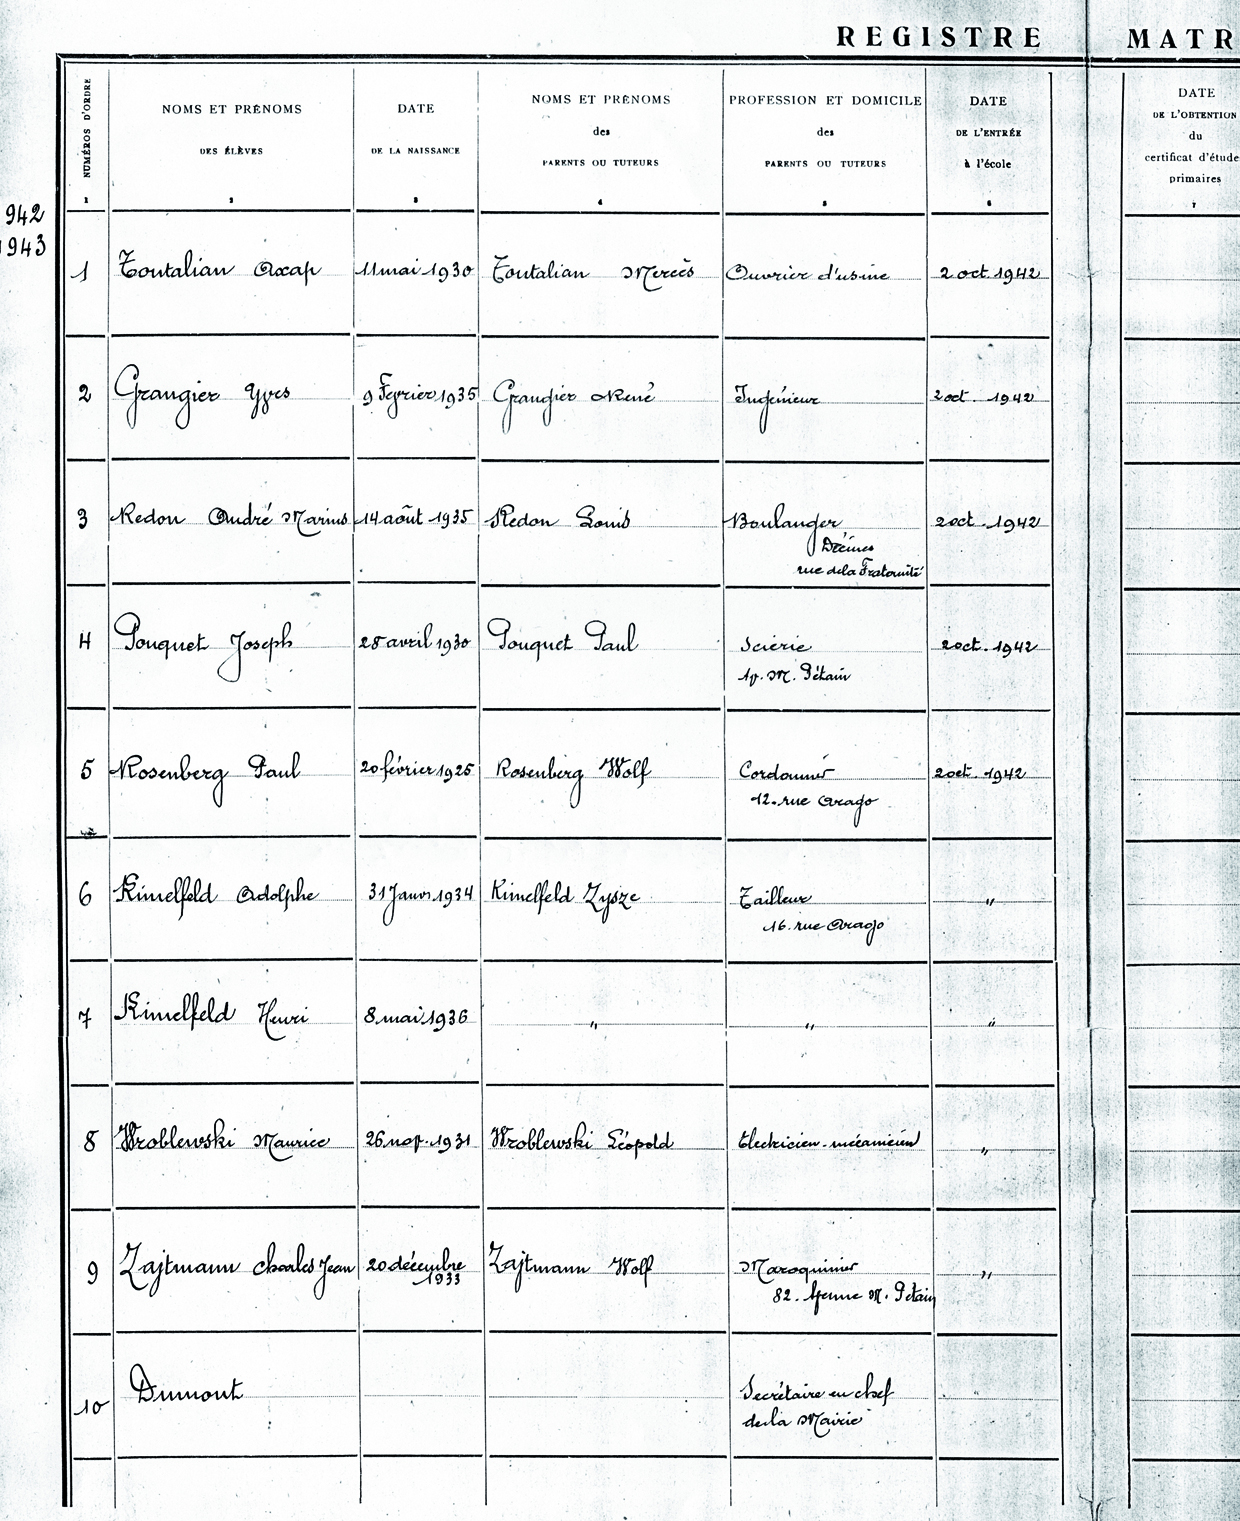 REGISTRE MATR
NUMÉROS D'ORDRE
1
NOMS ET PRÉNOMS
DES ÉLÈVES
2
DATE
DE LA NAISSANCE
3
NOMS ET PRÉNOMS
des
PARENTS OU TUTEURS
4
PROFESSION ET DOMICILE
des
PARENTS OU TUTEURS
5
DATE
DE L'ENTRÉE
à l'école
6
DATE
DE L'OBTENTION
du
certificat d'étude
primaires
7
942
1943
1 Toutalian 11 mai 1930 Toutalian Ouvrier d'usine 2 oct. 1942
2 Grangier Yves 9 Février 1935 Grangier René Ingénieur 2 oct. 1942
3 Redon André Marius 14 août 1935 Redon Louis Boulanger 2 oct. 1942
Décines
rue de la Fraternité
4 Pouquet Joseph 28 avril 1930 Pouquet Paul Scierie 2 oct. 1942
M. Pétain
5 Rosenberg Paul 20 février 1925 Rosenberg Wolf Cordonnier 2 oct. 1942
12. rue Arago
6 Kimelfeld Adolphe 31 Janv. 1934 Kimelfeld Zysze Tailleur "
16. rue Arago
7 Kimelfeld Henri 8 mai 1936 " " "
8 Wroblewski Maurice 26 nov. 1931 Wroblewski Léopold Electricien-mécanicien "
9 Zajtmann Charles Jean 20 décembre Zajtmann Wolf Maroquinier "
1933
82. M. Pétain
10 Dumont Secrétaire en chef
de la Mairie